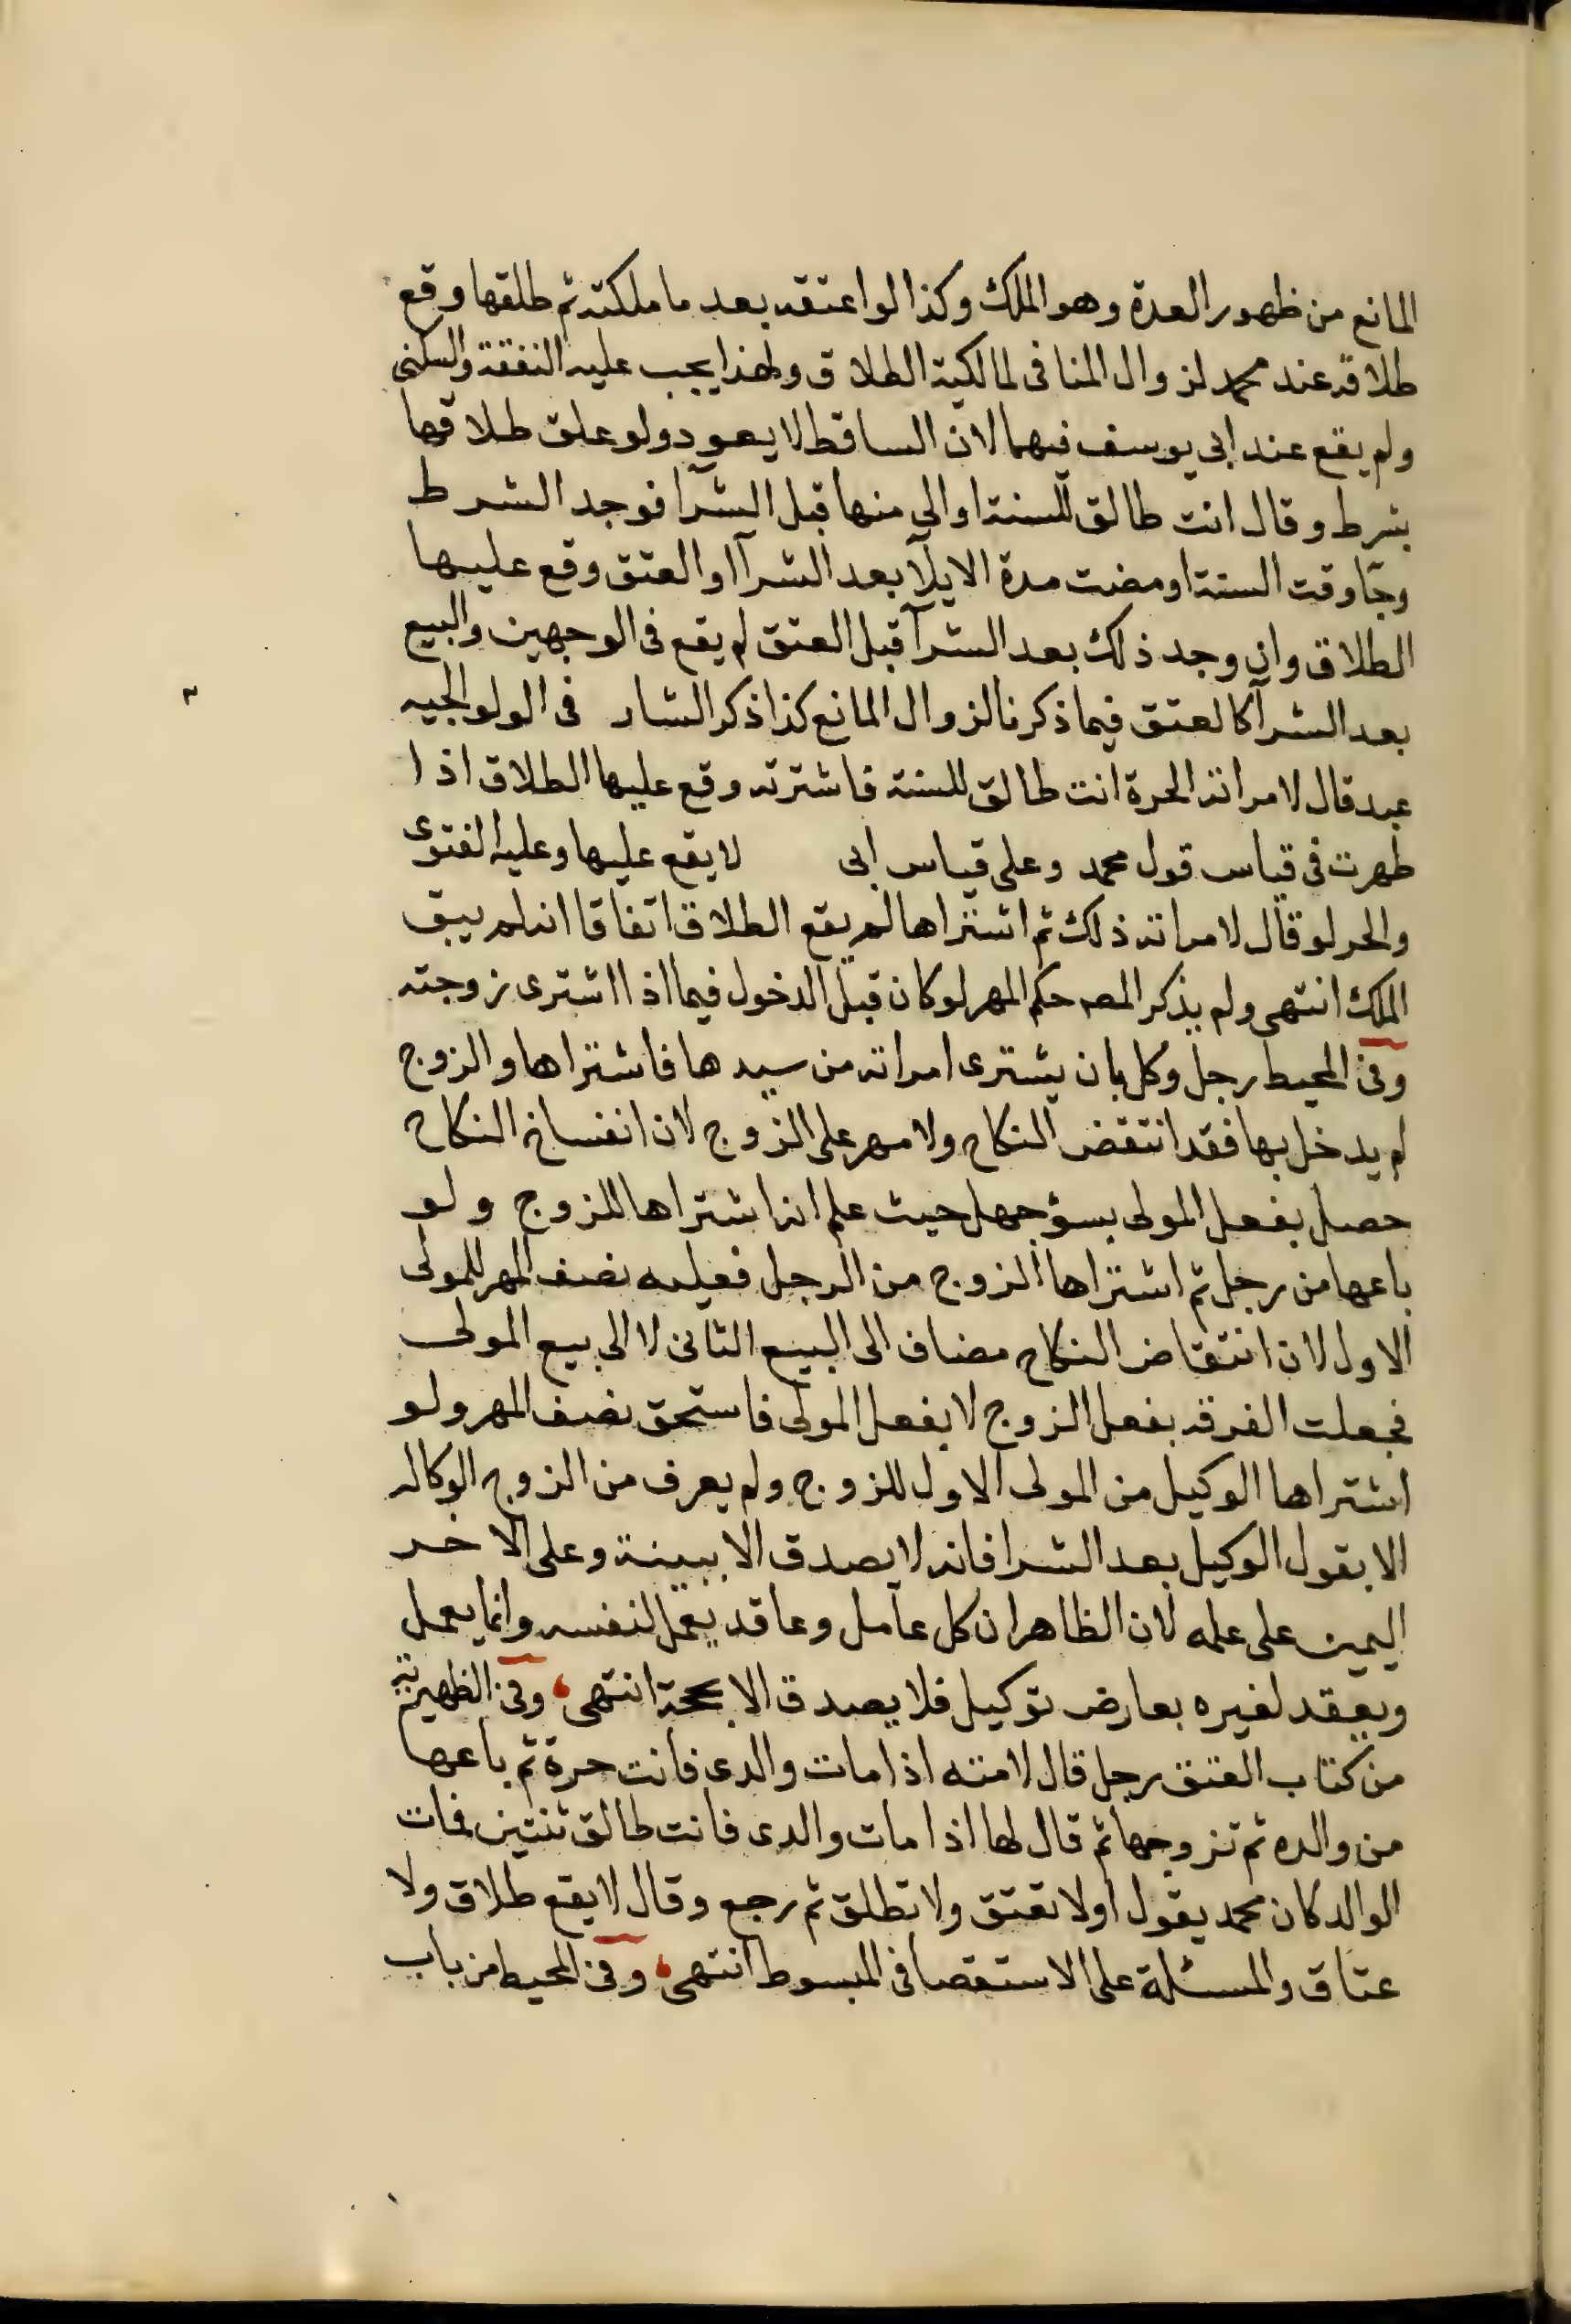 المانع من ظهور العدة وهو الملك وكذا لو اعتقه بعد ما ملكته ثم طلقها وقع
طلاقه عند محمد لزوال المنافى لمالكية الطلاق ولهذا يجب عليه النفقة والسكنى
ولم يقع عند ابى يوسف فيهما لان الساقط لا يعود ولو علق طلاقها
بشرط وقال انت طالق للسنة او الى منها قبل الشرآ فوجد الشرط
وجآ وقت السنة او مضت مدة الايلآ بعد الشرآ او العتق وقع عليها
الطلاق وان وجد ذلك بعد الشرآ قبل العتق لم يقع فى الوجهين والبيع
بعد الشرآ كالعتق فيما ذكرنا لزوال المانع كذا ذكر الشار فى الولوالجيه
عبد قال لامراته الحرة انت طالق للسنة فاشترته وقع عليها الطلاق اذا
طهرت فى قياس قول محمد وعلى قياس ابى لا يقع عليها وعليه الفتوى
والحر لو قال لامراته ذلك ثم اشتراها لم يقع الطلاق اتفاقا انه لم يبق
الملك انتهى ولم يذكر المصه حكم المهر لو كان قبل الدخول فيما اذا اشترى زوجته
وفى المحيط رجل وكل بان يشترى امراته من سيدها فاشتراها والزوج
لم يدخل بها فقد انتقض النكاح ولا مهر على الزوج لان انفساخ النكاح
حصل بفعل المولى بسؤ جهل حيث علم انه اشتراها للزوج ولو
باعها من رجل ثم اشتراها الزوج من الرجل فعليه نصف المهر للمولى
الاول لان انتقاض النكاح مضاف الى البيع الثانى لا الى بيع المولى
فجعلت الفرقه بفعل الزوج لا بفعل المولى فاستحق نصف المهر ولو
اشتراها الوكيل من المولى الاول للزوج ولم يعرف من الزوج الوكاله
الا بقول الوكيل بعد الشرا فانه لا يصدق الا ببينة وعلى الاخر
اليمين على علمه لان الظاهر ان كل عامل وعاقد يعمل لنفسه وانما يعمل
ويعقد لغيره بعارض توكيل فلا يصدق الا بحجة انتهى، وفى الظهيرية
من كتاب العتق رجل قال لامته اذا مات والدى فانت حرة ثم باعها
من والده ثم تزوجها ثم قال لها اذا مات والدى فانت طالق ثنتين فمات
الوالد كان محمد يقول اولا تعتق ولا تطلق ثم رجع وقال لا يقع طلاق ولا
عتاق والمسئلة على الاستقصا فى المبسوط انتهى، وفى المحيط من باب